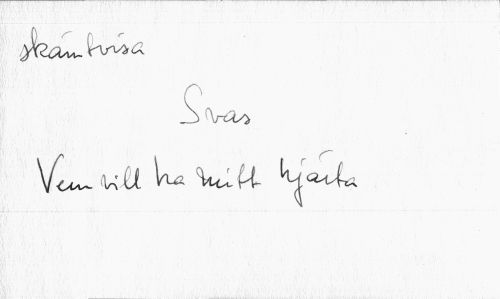 skämtvisa
Svas
Vem vill ha mitt hjärta